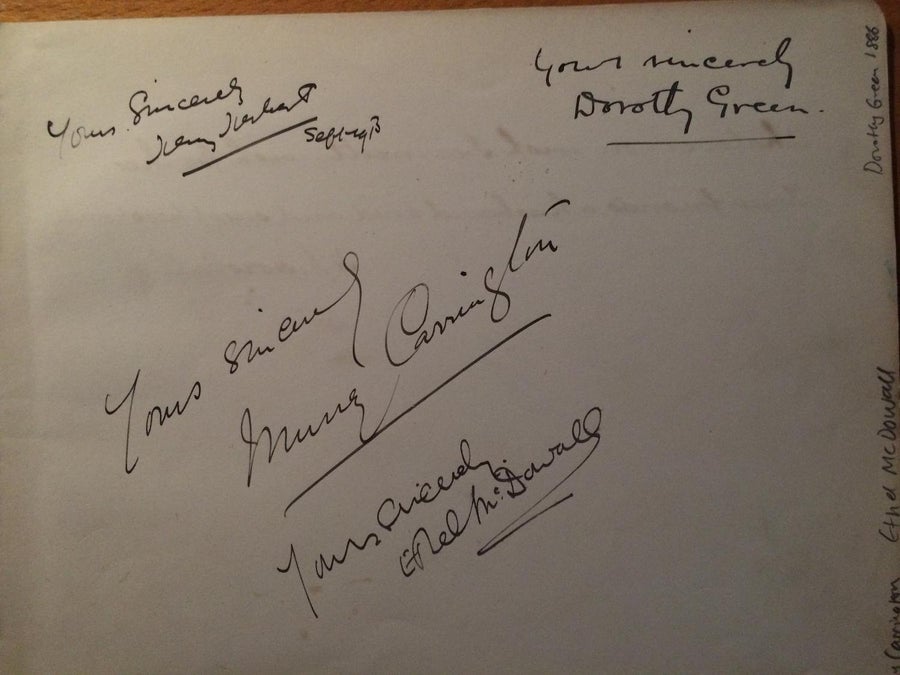 Yours Sincerely
Henry Herbert
Yours sincerely
Dorothy Green.
Yours Sincerely
Murray Carrington
Yours Sincerely.
Ethel McDowall
Dorothy Green 1886
Ethel McDowall
Carrington